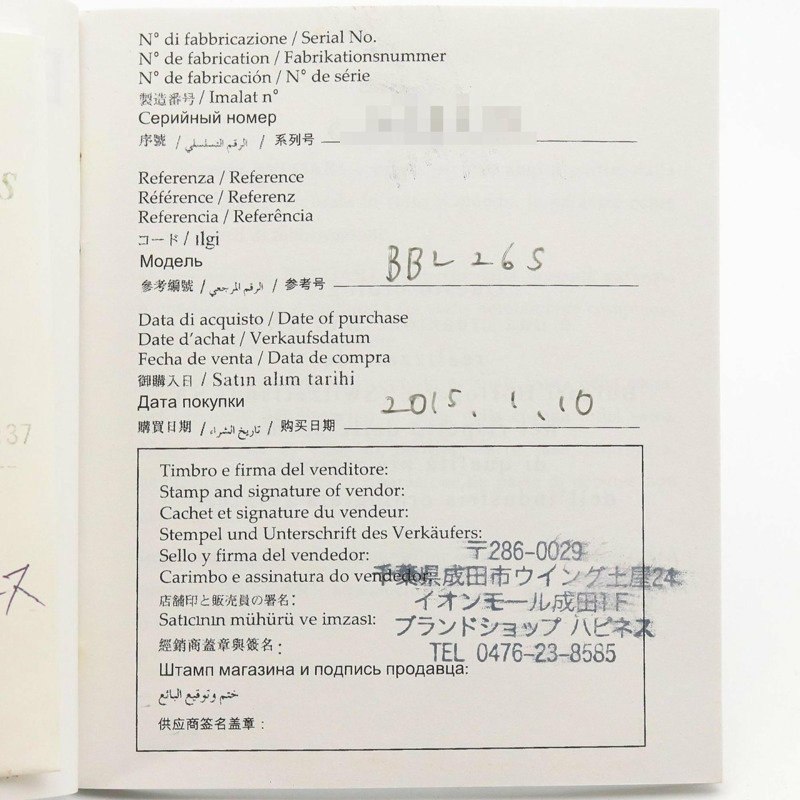 N° di fabbricazione / Serial No.
N° de fabrication / Fabrikationsnummer
N° de fabricación / N° de série
製造番号 / Imalat n°
Серийный номер
序號 / الرقم التسلسلي / 系列号
Referenza / Reference
Référence / Referenz
Referencia / Referência
コード / Ilgi
Модель
參考編號 / الرقم المرجعي / 参考号
BBL26S
Data di acquisto / Date of purchase
Date d'achat / Verkaufsdatum
Fecha de venta / Data de compra
御購入日 / Satın alım tarihi
Дата покупки
購買日期 / تاريخ الشراء / 购买日期
2015.1.10
Timbro e firma del venditore:
Stamp and signature of vendor:
Cachet et signature du vendeur:
Stempel und Unterschrift des Verkäufers:
Sello y firma del vendedor:
Carimbo e assinatura do vendedor:
店舗印と販売員の署名:
Satıcının mühürü ve imzası:
經銷商蓋章與簽名:
Штамп магазина и подпись продавца:
ختم وتوقيع البائع
供应商签名盖章:
〒286-0029
千葉県成田市ウイング土屋24
イオンモール成田1F
ブランドショップ ハピネス
TEL 0476-23-8585
37